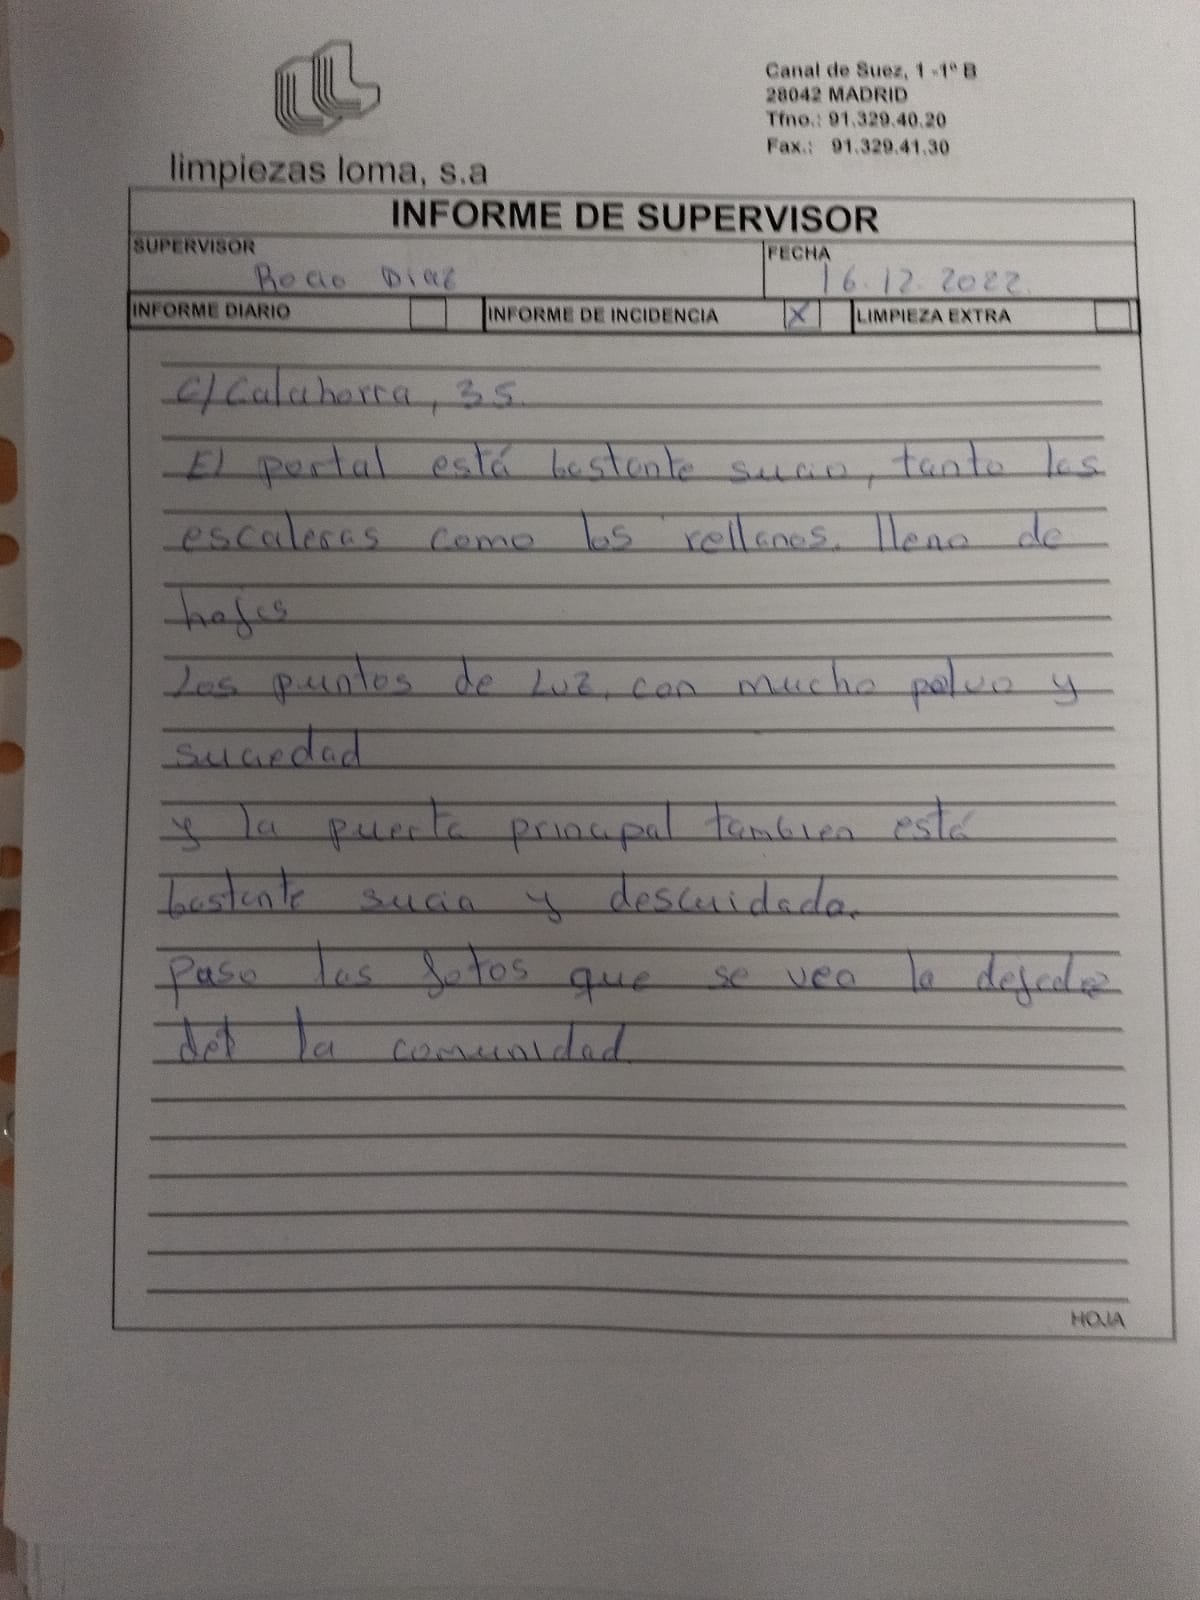 Canal de Suez, 1 -1º B
28042 MADRID
Tfno.: 91.329.40.20
Fax.: 91.329.41.30
limpiezas loma, s.a
INFORME DE SUPERVISOR
SUPERVISOR
Rocio Diaz
FECHA
16.12.2022.
INFORME DIARIO INFORME DE INCIDENCIA X LIMPIEZA EXTRA
C/ Calahorra, 35.
El portal está bastante sucio, tanto las
escaleras como los rellanos. lleno de
hojas
Los puntos de Luz, con mucho polvo y
suciedad
y la puerta principal tambien está
bastante sucia y descuidada.
Paso las fotos que se vea la dejadez
del la comunidad.
HOJA